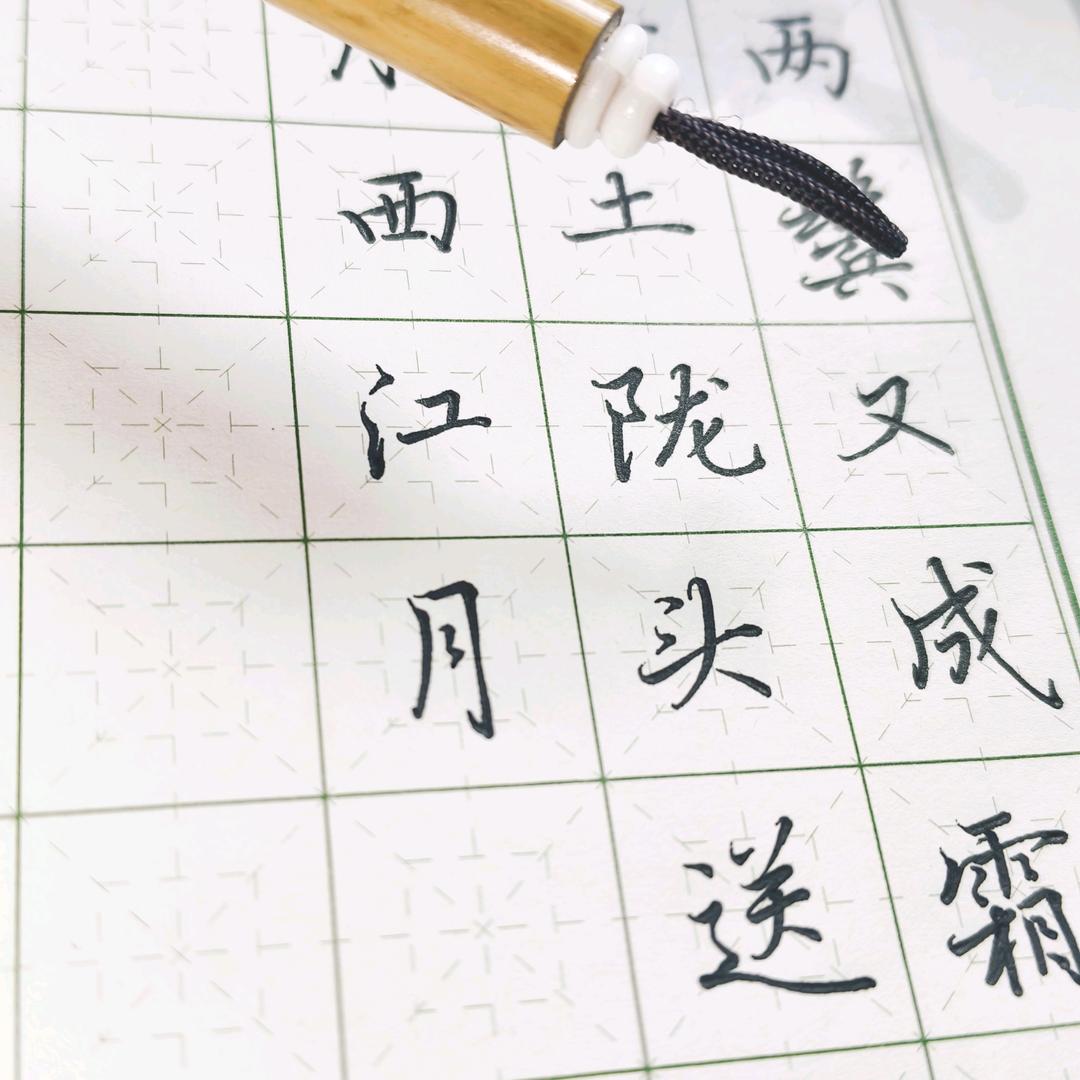 两鬓又成霜
土陇头送
西江月